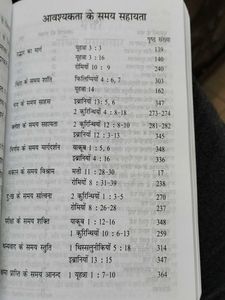 आवश्यकता के समय सहायता
पृष्ठ संख्या
उद्धार का मार्ग यूहन्ना 3 : 3 139
यूहन्ना 3 : 16 140
रोमियों 10 : 9 240
के समय शान्ति फिलिप्पियों 4 : 6, 7 303
यूहन्ना 14 162
के समय साहस इब्रानियों 13 : 5, 6 347
2 कुरिन्थियों 4 : 8-18 273-274
के समय सहायता 2 कुरिन्थियों 12 : 8-10 281-282
इब्रानियों 12 : 3-13 345
के समय मार्गदर्शन याकूब 1 : 5 348
इब्रानियों 4 : 16 336
के समय विश्राम मत्ती 11 : 28-30 17
रोमियों 8 : 31-39 238
के समय सांत्वना 2 कुरिन्थियों 1 : 3-5 270
रोमियों 8 : 26-28 237
परीक्षा के समय शक्ति याकूब 1 : 12-16 348
1 कुरिन्थियों 10 : 6-13 259
धन्यवाद के समय स्तुति 1 थिस्सलुनीकियों 5 : 18 314
इब्रानियों 13 : 15 347
प्राप्ति के समय आनन्द 1 यूहन्ना 1 : 7-10 364